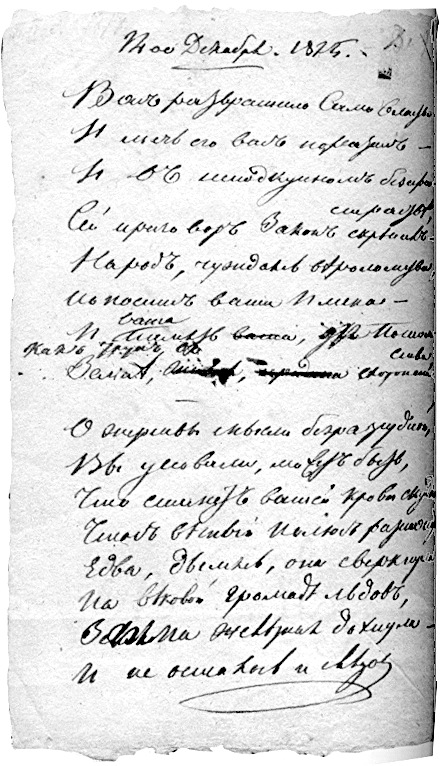 14ое Декабря. 1825. –
Васъ развратило Самовласть
И мечъ его васъ поразилъ –
И въ неподкупномъ безпри-
страстьѣ,
Сей приговоръ Законъ скрѣпилъ –
Народъ, чуждаясь вѣроломства,
Поноситъ ваши Имена –
ваша
И память ваша, Потом
Какъ трупъ, въ
Землѣ, схоронена
О жертвы мысли безразсудной,
Вы уповали, можетъ быть,
Что станетъ вашей крови скудной
Чтобъ вѣчный полюсъ растопить
Едва, дымясь, она сверкнула
На вѣковой громадѣ льдовъ,
Зима желѣзная дохнула –
И не осталось и слѣдовъ